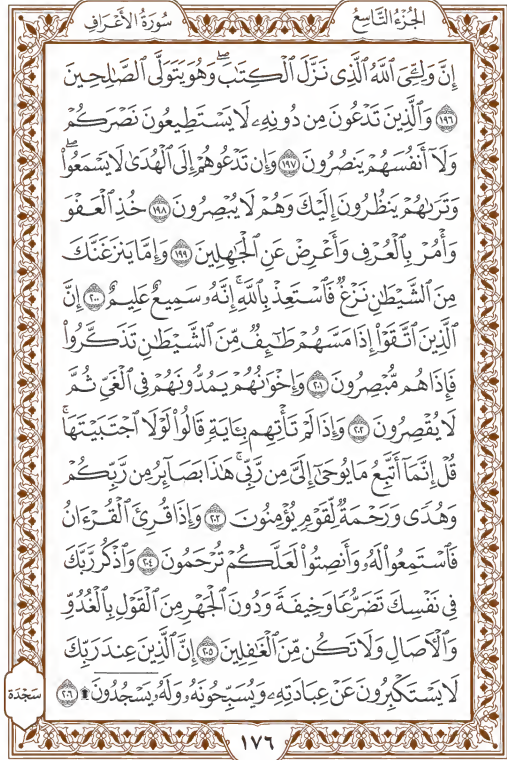 الجُزْءُ التَّاسِعُ
سُورَةُ الأَعْرَافِ
إِنَّ وَلِـِّۧيَ ٱللَّهُ ٱلَّذِي نَزَّلَ ٱلْكِتَٰبَۖ وَهُوَ يَتَوَلَّى ٱلصَّٰلِحِينَ
١٩٦ وَٱلَّذِينَ تَدْعُونَ مِن دُونِهِۦ لَا يَسْتَطِيعُونَ نَصْرَكُمْ
وَلَآ أَنفُسَهُمْ يَنصُرُونَ ١٩٧ وَإِن تَدْعُوهُمْ إِلَى ٱلْهُدَىٰ لَا يَسْمَعُوا۟ۖ
وَتَرَىٰهُمْ يَنظُرُونَ إِلَيْكَ وَهُمْ لَا يُبْصِرُونَ ١٩٨ خُذِ ٱلْعَفْوَ
وَأْمُرْ بِٱلْعُرْفِ وَأَعْرِضْ عَنِ ٱلْجَٰهِلِينَ ١٩٩ وَإِمَّا يَنزَغَنَّكَ
مِنَ ٱلشَّيْطَٰنِ نَزْغٌ فَٱسْتَعِذْ بِٱللَّهِۚ إِنَّهُۥ سَمِيعٌ عَلِيمٌ ٢٠٠ إِنَّ
ٱلَّذِينَ ٱتَّقَوْا۟ إِذَا مَسَّهُمْ طَٰٓئِفٌ مِّنَ ٱلشَّيْطَٰنِ تَذَكَّرُوا۟
فَإِذَا هُم مُّبْصِرُونَ ٢٠١ وَإِخْوَٰنُهُمْ يَمُدُّونَهُمْ فِي ٱلْغَيِّ ثُمَّ
لَا يُقْصِرُونَ ٢٠٢ وَإِذَا لَمْ تَأْتِهِم بِـَٔايَةٍ قَالُوا۟ لَوْلَا ٱجْتَبَيْتَهَاۚ
قُلْ إِنَّمَآ أَتَّبِعُ مَا يُوحَىٰٓ إِلَيَّ مِن رَّبِّيۚ هَٰذَا بَصَآئِرُ مِن رَّبِّكُمْ
وَهُدًى وَرَحْمَةٌ لِّقَوْمٍ يُؤْمِنُونَ ٢٠٣ وَإِذَا قُرِئَ ٱلْقُرْءَانُ
فَٱسْتَمِعُوا۟ لَهُۥ وَأَنصِتُوا۟ لَعَلَّكُمْ تُرْحَمُونَ ٢٠٤ وَٱذْكُر رَّبَّكَ
فِي نَفْسِكَ تَضَرُّعًا وَخِيفَةً وَدُونَ ٱلْجَهْرِ مِنَ ٱلْقَوْلِ بِٱلْغُدُوِّ
وَٱلْءَاصَالِ وَلَا تَكُن مِّنَ ٱلْغَٰفِلِينَ ٢٠٥ إِنَّ ٱلَّذِينَ عِندَ رَبِّكَ
لَا يَسْتَكْبِرُونَ عَنْ عِبَادَتِهِۦ وَيُسَبِّحُونَهُۥ وَلَهُۥ يَسْجُدُونَ۩ ٢٠٦
سَجْدَة
١٧٦